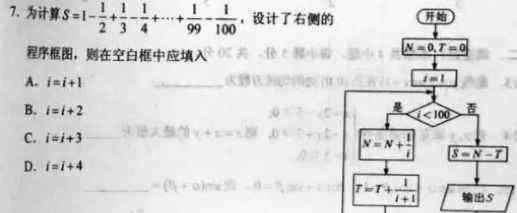 7. 为计算 S=1-\frac{1}{2}+\frac{1}{3}-\frac{1}{4}+⋯+\frac{1}{99}-\frac{1}{100}，设计了右侧的
程序框图，则在空白框中应填入
A. i=i+1
B. i=i+2
C. i=i+3
D. i=i+4
开始
N=0,T=0
i=1
是
i<100
否
N=N+\frac{1}{i}
S=N-T
T=T+\frac{1}{i+1}
输出S